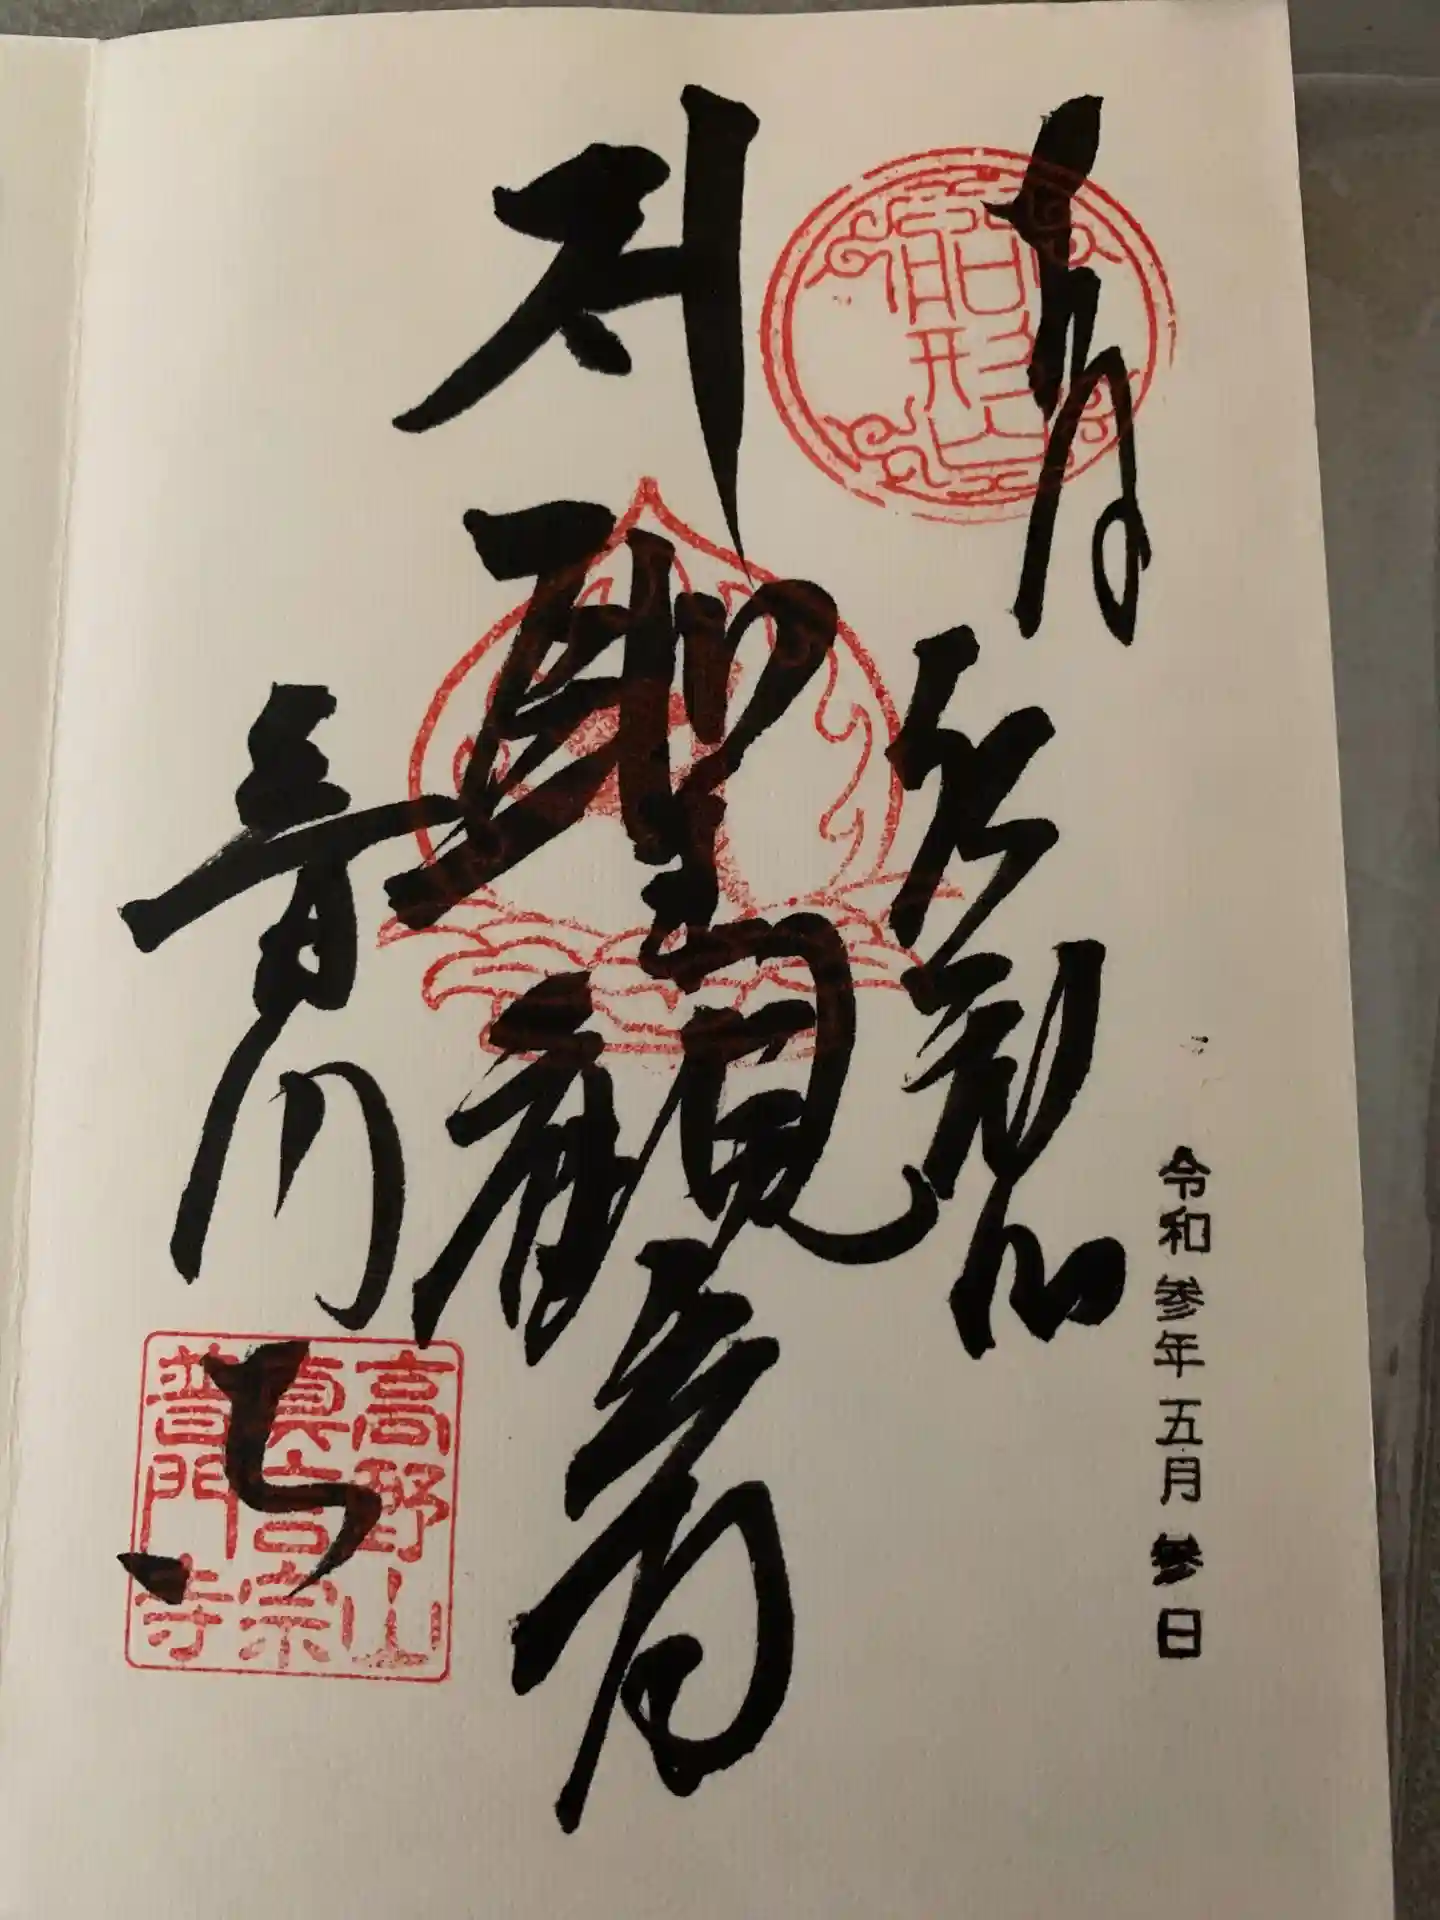 令和参年五月参日
船形山
聖観音
普門寺
高野山
真言宗
普門寺